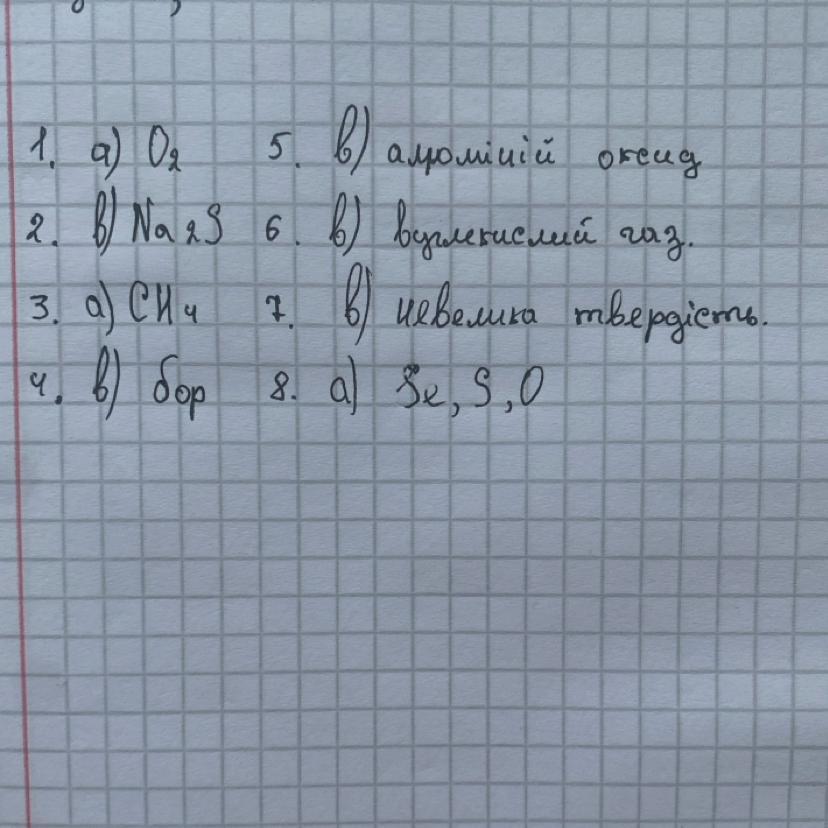 1. а) O2 5. в) алюміній оксид
2. в) Na2S 6. в) вуглекислий газ.
3. а) CH4 7. в) невелика твердість.
4. в) бор 8. а) Se, S, O